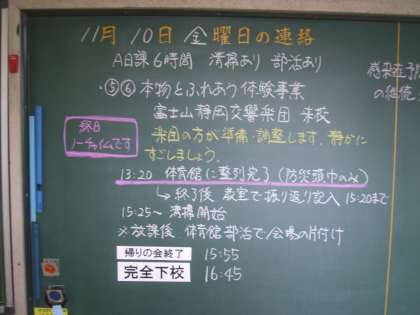 11月 10日 金曜日の連絡
A日課6時間 清掃あり 部活あり
・⑤⑥本物とふれあう体験事業
富士山静岡交響楽団 来校
終日
ノーチャイムです
楽団の方が準備・調整します。静かに
すごしましょう。
13:20 体育館に整列完了(防災頭巾のみ)
↳終了後 教室で振り返り記入 15:20まで
15:25〜 清掃開始
※放課後 体育館部活で会場の片付け
帰りの会終了 15:55
完全下校 16:45
感染症予
の継続